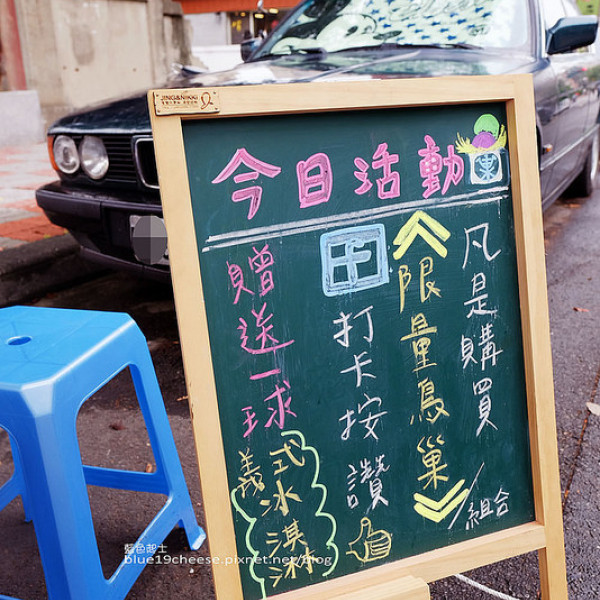 JING&NIKKI
今日活動
菓
凡是購買
限量鳥巢
/組合
田
打卡按讚
贈送一球
義式冰淇淋
藍色起士
blue19cheese.pixnet.net/blog